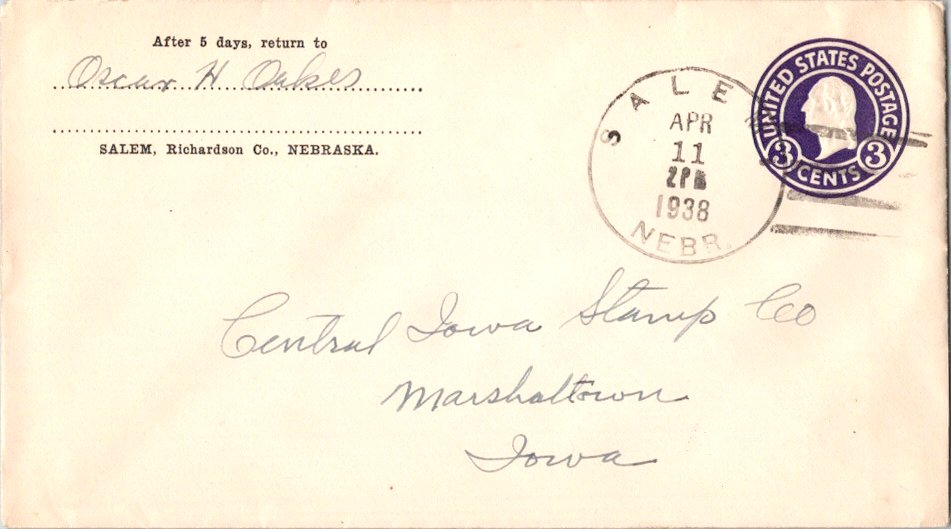 After 5 days, return to
Oscar H Oakes
SALEM, Richardson Co., NEBRASKA.
SALE
APR
11
2PM
1938
NEBR.
UNITED STATES POSTAGE
3 3
CENTS
Central Iowa Stamp Co
Marshalltown
Iowa